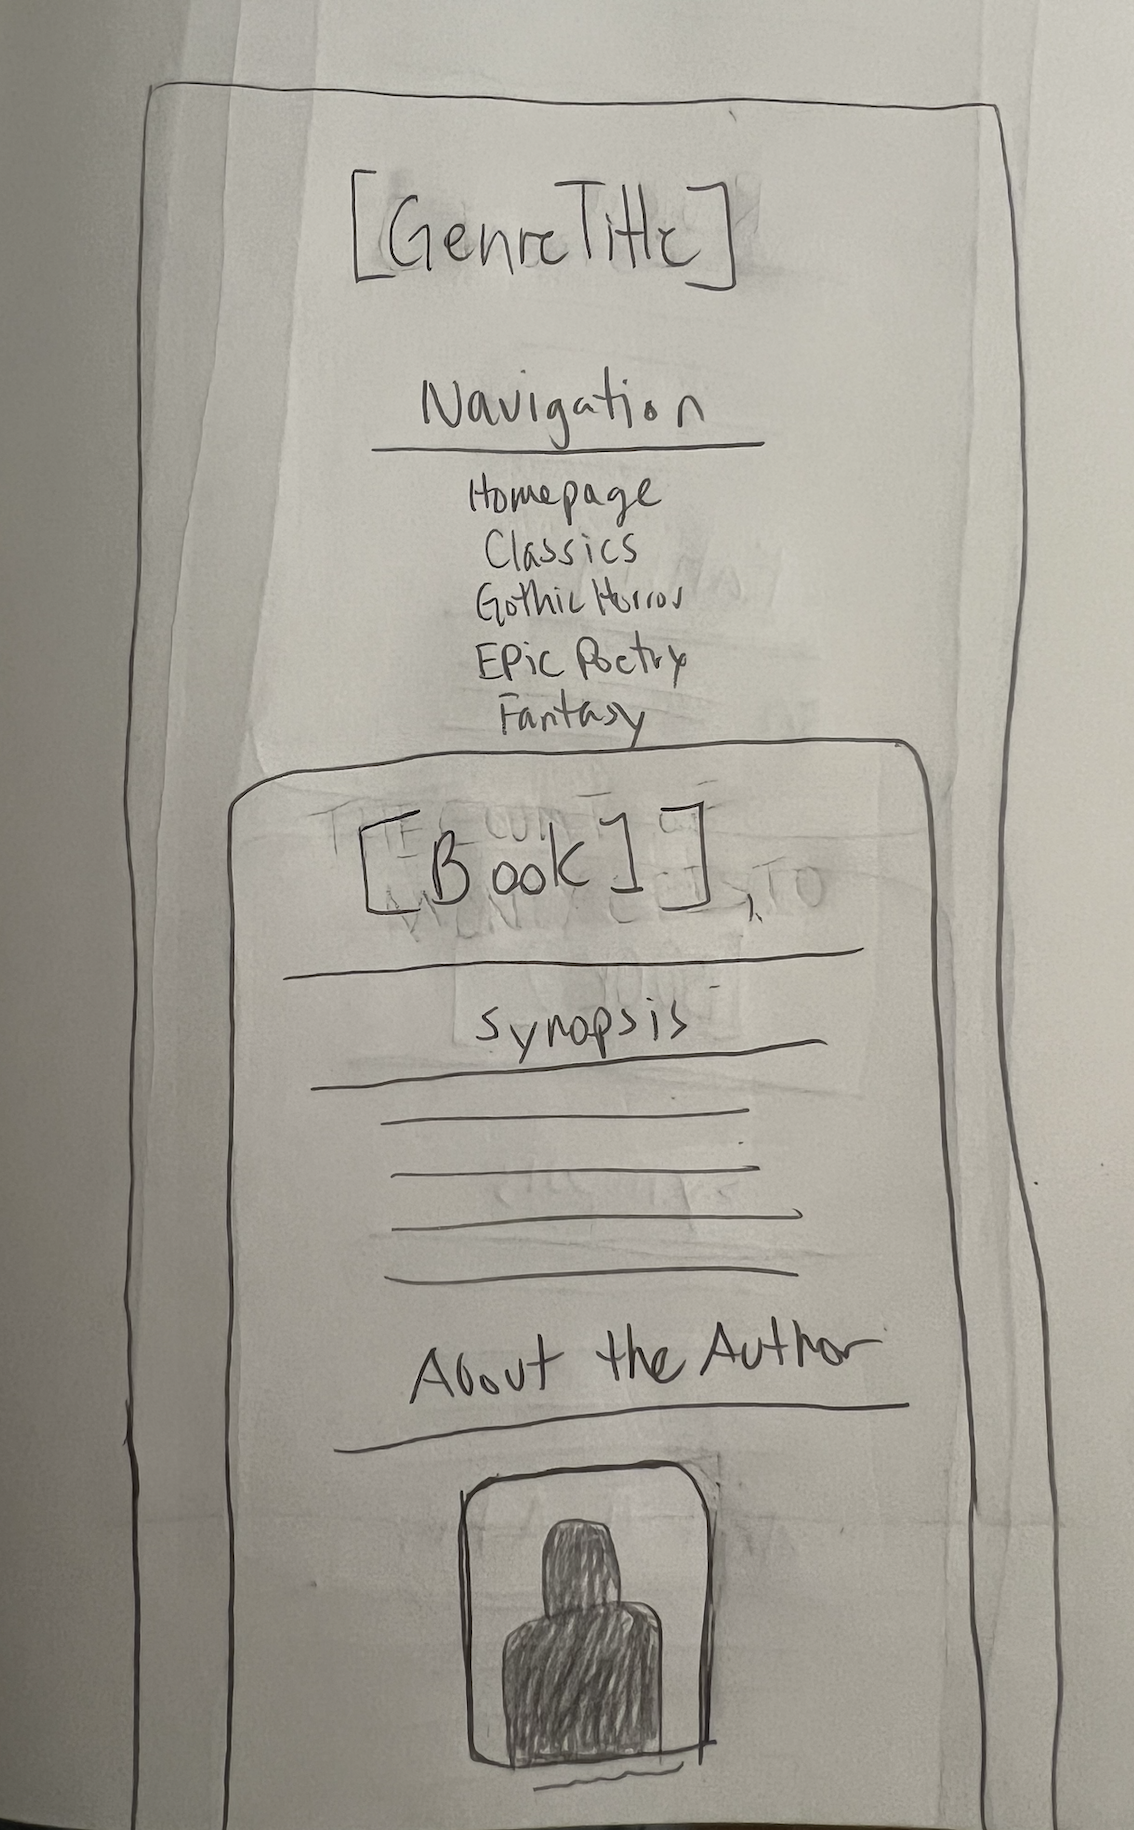 [GenreTitle]
Navigation
Homepage
Classics
Gothic Horror
Epic Poetry
Fantasy
[Book 1]
Synopsis
About the Author